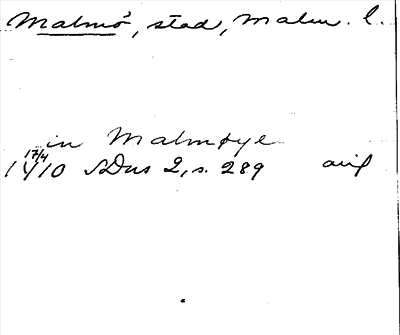 Malmö, stad, Malm. l.
in Malmøye
17/4 1410 SDns 2, s. 289 avs